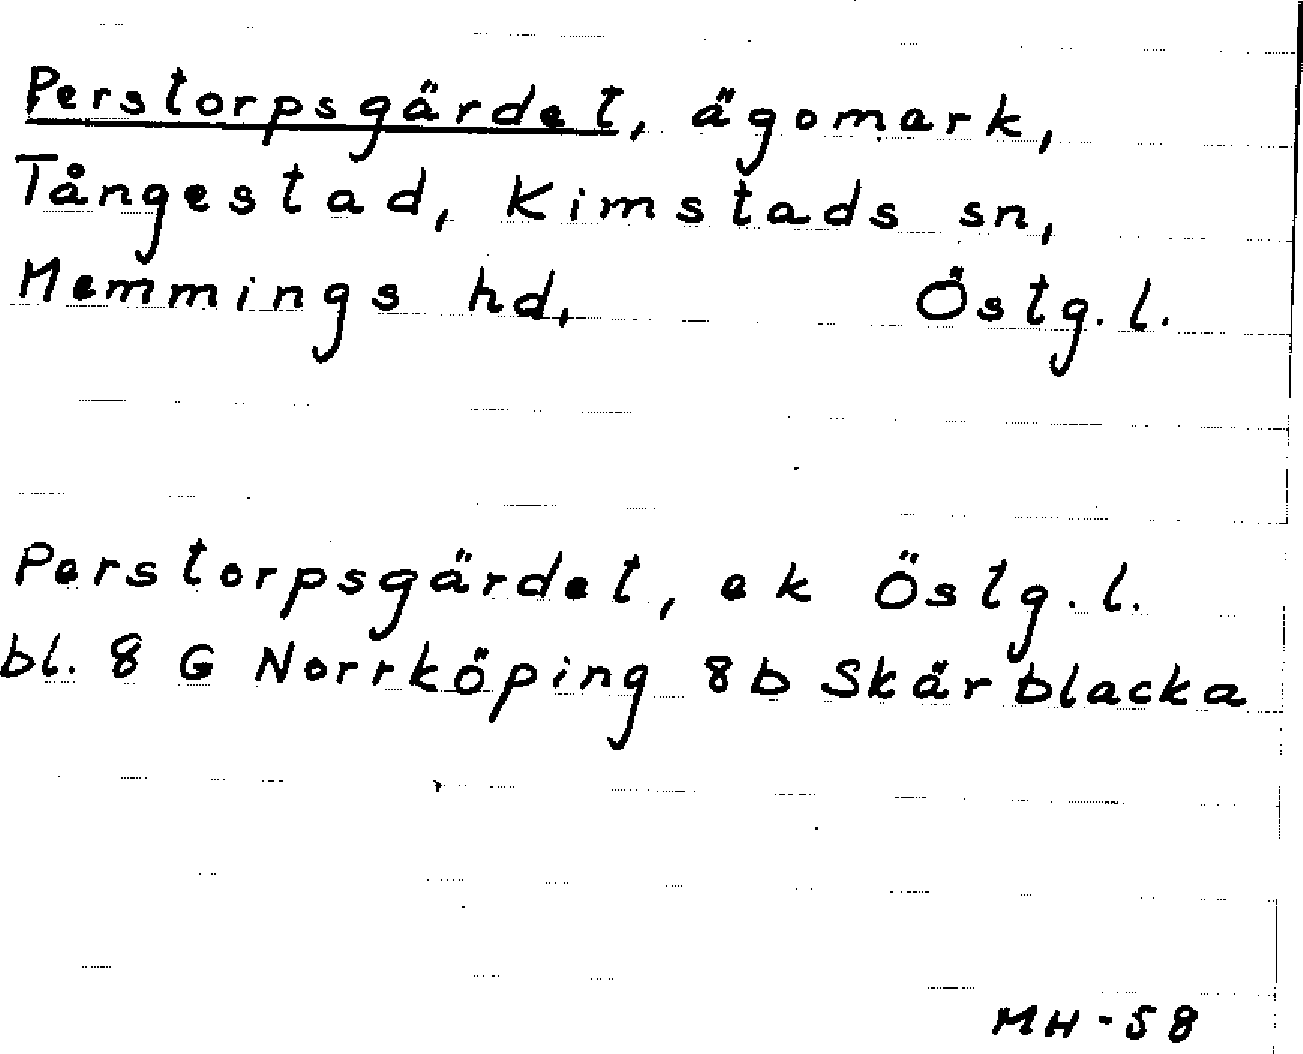 Perstorpsgärdet, ägomark,
Tångestad, Kimstads sn,
Memmings hd, Östg. l.
Perstorpsgärdet, ek Östg. l.
bl. 8 G Norrköping 8b Skärblacka
MH-58